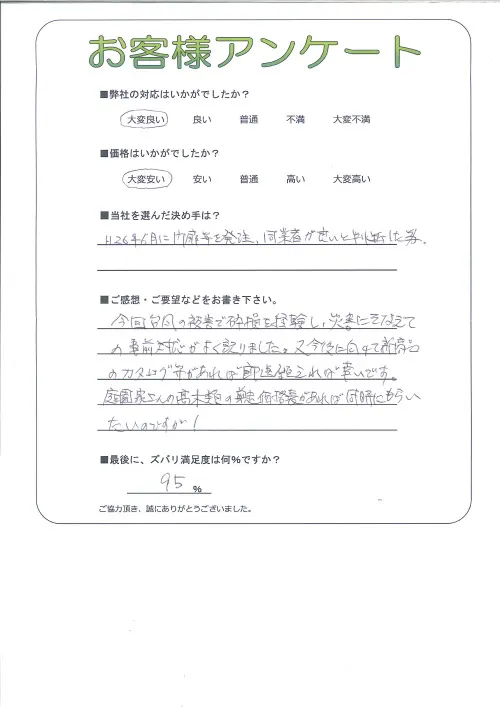 お客様アンケート
■弊社の対応はいかがでしたか？
大変良い 良い 普通 不満 大変不満
■価格はいかがでしたか？
大変安い 安い 普通 高い 大変高い
■当社を選んだ決め手は？
H26年6月に門扉等を発注、同業者が良いと判断した為。
■ご感想・ご要望などをお書き下さい。
今回台風の被害で破損を経験し、災害にそなえて
の事前対応がよく語りました。又今後に向けて新商品
のカタログ等があれば郵送頂ければ幸いです。
庭園家さんの高木類の剪定価格表があれば同時にもらい
たいのですが！
■最後に、ズバリ満足度は何％ですか？
95 %
ご協力頂き、誠にありがとうございました。